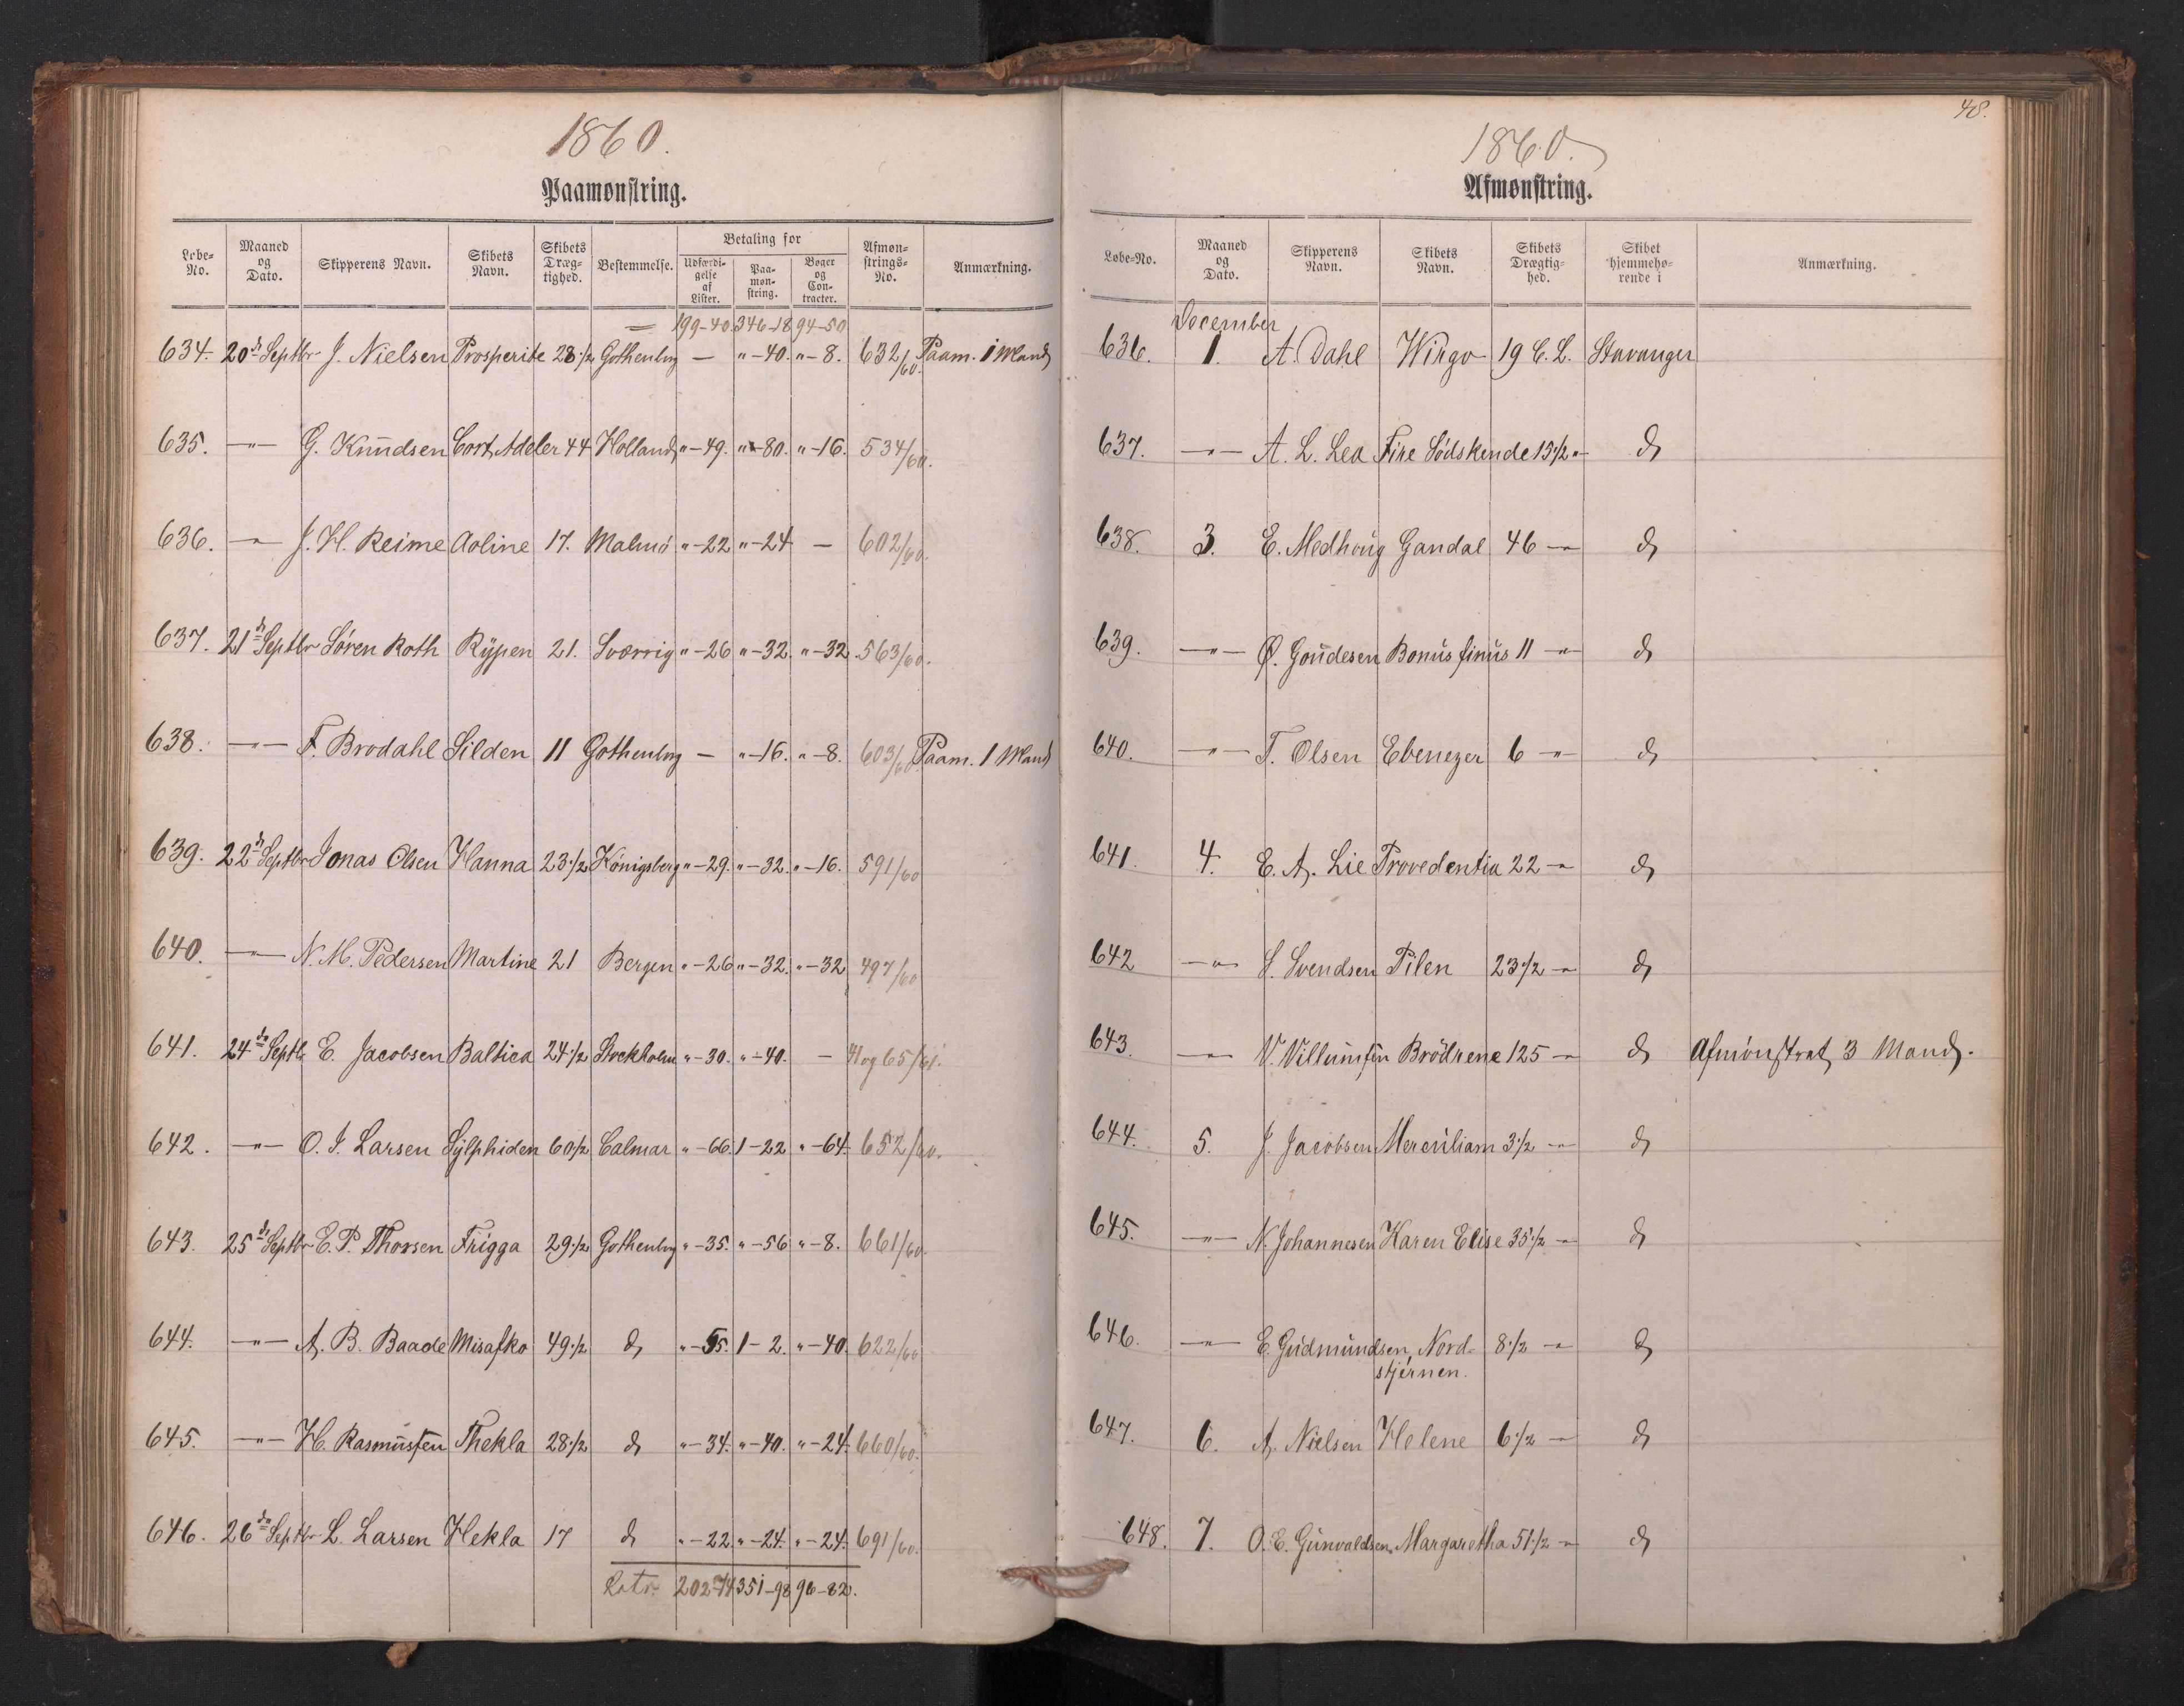 1860.
Paamønstring.
Løbe-No. | Maaned og Dato. | Skipperens Navn. | Skibets Navn. | Skibets Dræg-tighed. | Bestemmelse. | Betaling for | Udfærdi-gelse af Lister. | Paa-møn-string. | Bøger og Con-tracter. | Afmøn-strings-No. | Anmærkning.
199-40 346-18 94-50
634. 20d Septbr J. Nielsen Prosperite 28 1/2 Gothenbrg — " -40. " -8. 632/60. Paam. 1 Mand
635. —"— G. Knudsen Cort Adeler 44 Holland " -49. " -80. " -16. 534/60.
636. —"— J. H. Reime Aoline 17. Malmö " -22 " -24 — 602/60.
637. 21d Septbr Søren Roth Rypen 21. Sverrig " -26 " -32. " -32. 563/60.
638. —"— F. Brodahl Silden 11 Gothenbrg — " -16. " -8. 603/60. Paam. 1 Mand
639. 22d Septbr Jonas Olsen Hanna 23 1/2 Königsberg " -29. " -32. " -16. 591/60
640. —"— N. M. Pedersen Martine 21 Bergen " -26 " -32. " -32 497/60
641. 24de Septb E. Jacobsen Baltica 24 1/2 Stockholm " -30. " -40. — 41 og 65/61.
642. —"— O. J. Larsen Sylphiden 60 1/2 Calmar " -66. 1-22 " -64. 652/60.
643. 25d Septbr E. P. Thorsen Frigga 29 1/2 Gothenbrg " -35. " -56 " -8. 661/60.
644. —"— A. B. Baade Misafko 49 1/2 do " -55. 1-2. " -40. 622/60
645. —"— H. Rasmussen Thekla 28 1/2 do " -34. " -40. " -24. 660/60.
646. 26de Septbr L. Larsen Hekla 17 do " -22. " -24. " -24. 691/60.
Latr. 202-74 351-98 96-82.
48.
1860.
Afmønstring.
Løbe-No. | Maaned og Dato. | Skipperens Navn. | Skibets Navn. | Skibets Drægtig-hed. | Skibet hjemmehø-rende i | Anmærkning.
December
636. 1. A. Dahl Wirgo 19 C. L. Stavanger
637. —"— A. L. Lea Fire Södskende 15 1/2 "— do
638. 3. E. Medhoug Gandal 46 —"— do
639. —"— Ø. Goudesen Bonus finus 11 —"— do
640. —"— T. Olsen Ebenezer 6 —"— do
641. 4. E. A. Lie Provedentia 22 —"— do
642 —"— S. Svendsen Pilen 23 1/2 —"— do
643. —"— V. Villumsen Brödrene 125 —"— do Afmønstret 3 Mand.
644. 5. J. Jacobsen Mercüliam 3 1/2 —"— do
645. —"— N. Johannesen Karen Elise 35 1/2 —"— do
646. —"— E. Gudmundsen Nord-
stjernen. 8 1/2 —"— do
647. 6. A. Nielsen Helene 6 1/2 —"— do
648. 7. O. E. Gunvaldsen Margaretha 51 1/2 —"— do